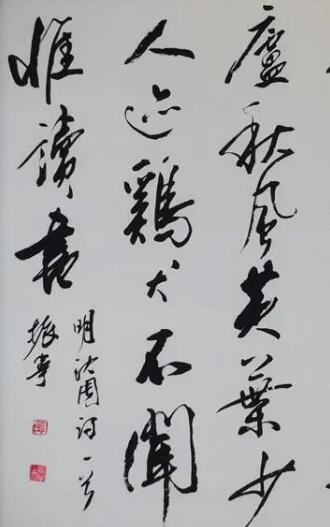 廬秋風黄葉少
人迹鷄犬不聞
惟讀書
明沈周詩一首
振亭